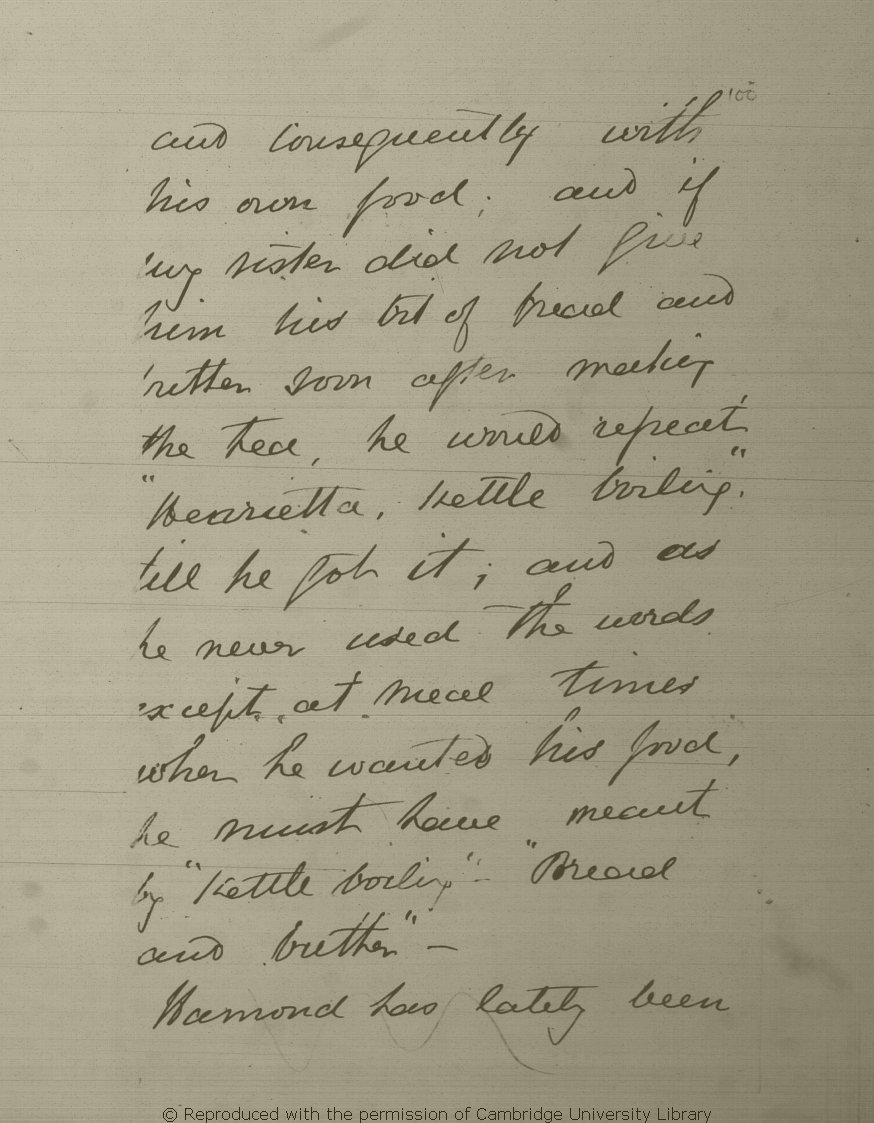 100
and consequently with
his own food; and if
my sister did not give
him his bit of bread and
butter soon after making
the tea, he would repeat
"Henrietta, Kettle boiling".
till he got it; and as
he never used the words
except at meal times
when he wanted his food,
he must have meant
by "Kettle boiling" - "Bread
and butter" —
Hamond has lately been
© Reproduced with the permission of Cambridge University Library